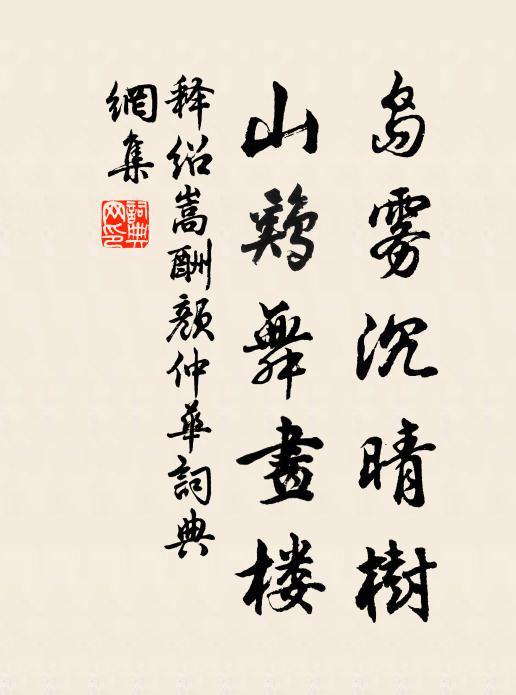 岛雾沉晴樹
山鷄舞畫楼
释绍嵩酬颜仲華詞典
網集
詞典網印